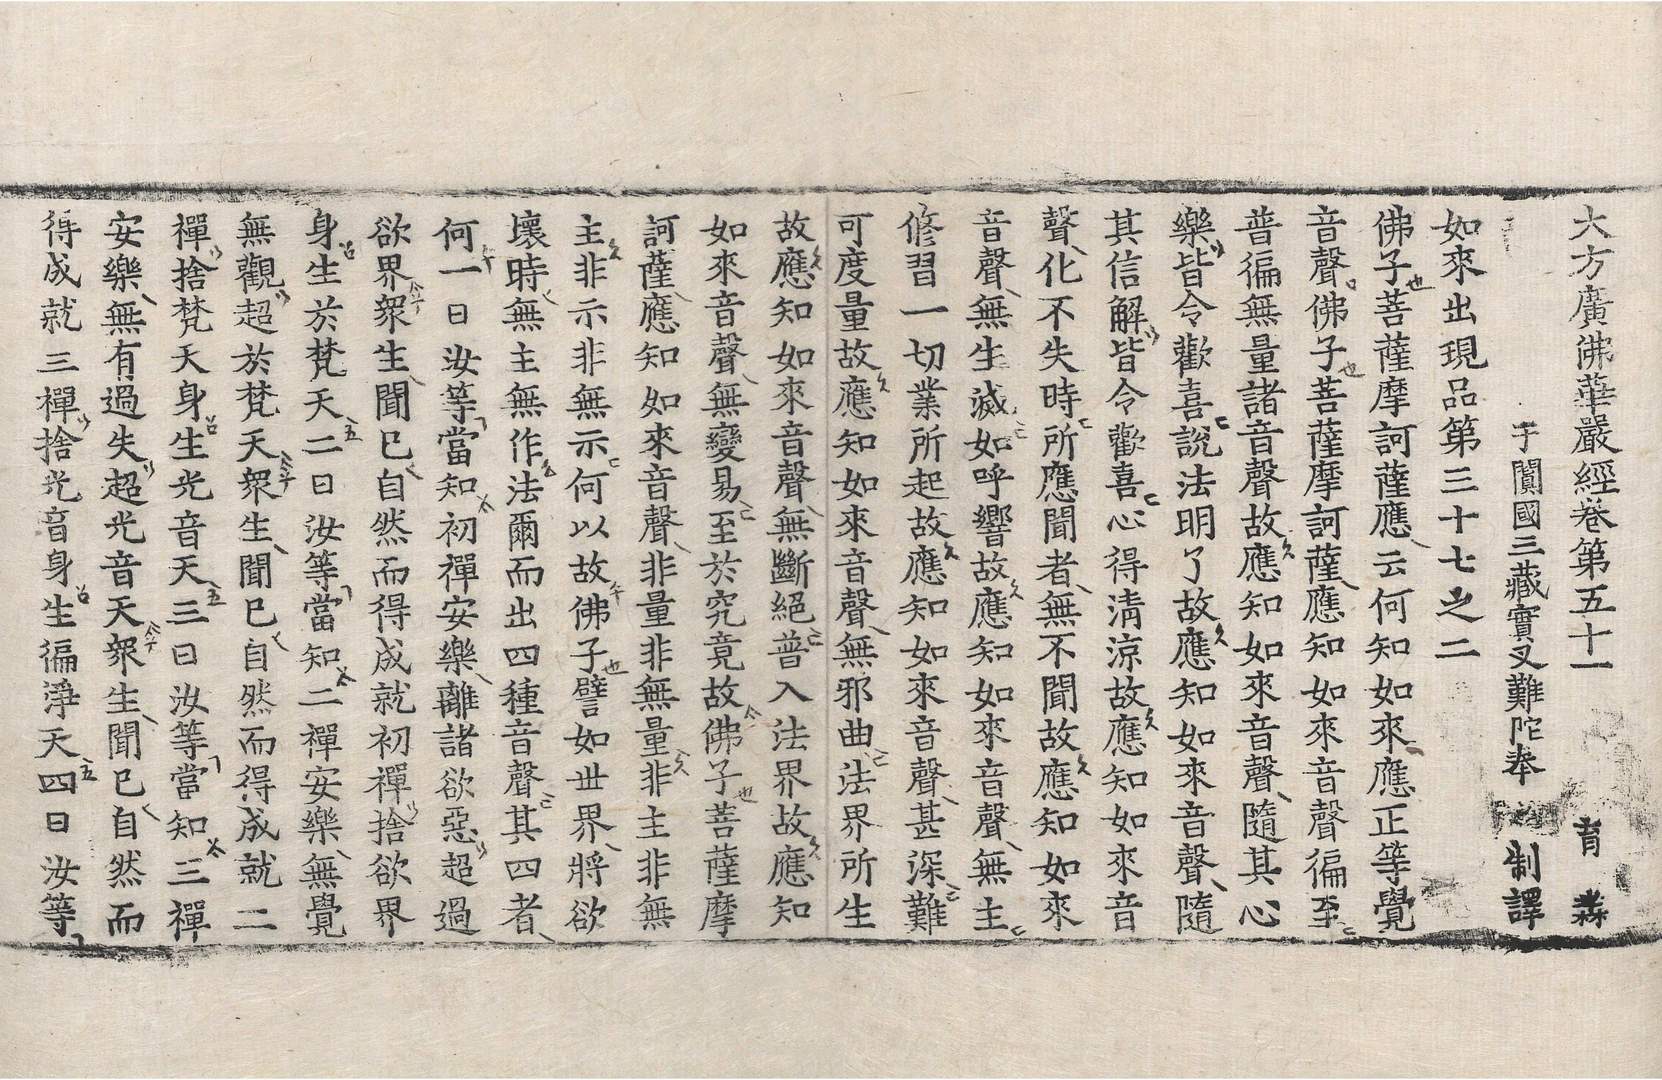 大方廣佛華嚴經卷第五十一 育
于闐國三藏實叉難陀奉 制譯
如來出現品第三十七之二
佛子菩薩摩訶薩應云何知如來應正等覺
音聲佛子菩薩摩訶薩應知如來音聲徧至
普徧無量諸音聲故應知如來音聲隨其心
樂皆令歡喜說法明了故應知如來音聲隨
其信解皆令歡喜心得清涼故應知如來音
聲化不失時所應聞者無不聞故應知如來
音聲無生滅如呼響故應知如來音聲無主
修習一切業所起故應知如來音聲甚深難
可度量故應知如來音聲無邪曲法界所生
故應知如來音聲無斷絕普入法界故應知
如來音聲無變易至於究竟故佛子菩薩摩
訶薩應知如來音聲非量非無量非主非無
主非示非無示何以故佛子譬如世界將欲
壞時無主無作法爾而出四種音聲其四者
何一曰汝等當知初禪安樂離諸欲惡超過
欲界眾生聞已自然而得成就初禪捨欲界
身生於梵天二曰汝等當知二禪安樂無覺
無觀超於梵天眾生聞已自然而得成就二
禪捨梵天身生光音天三曰汝等當知三禪
安樂無有過失超光音天眾生聞已自然而
得成就三禪捨光音身生徧淨天四曰汝等